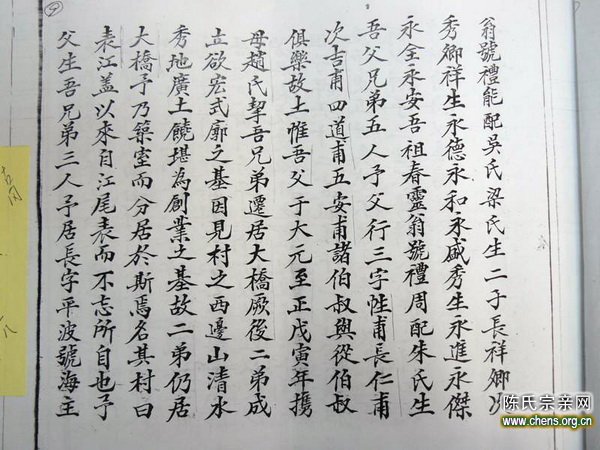 翁號禮能配吳氏梁氏生二子長祥卿次
秀卿祥生永德永和永盛秀生永進永傑
永全永安吾祖春靈翁號禮周配朱氏生
吾父兄弟五人予父行三字性甫長仁甫
次吉甫四道甫五安甫諸伯叔與從伯叔
俱樂故土惟吾父于大元至正戊寅年携
母趙氏挈吾兄弟遷居大橋厥後二弟成
立欲宏式廓之基因見村之西邊山清水
秀地廣土饒堪為創業之基故二弟仍居
大橋予乃築室而分居於斯焉名其村曰
表江盖以來自江尾表而不忘所自也予
父生吾兄弟三人予居長字平波號海主
陈氏宗亲网
www.chens.org.cn